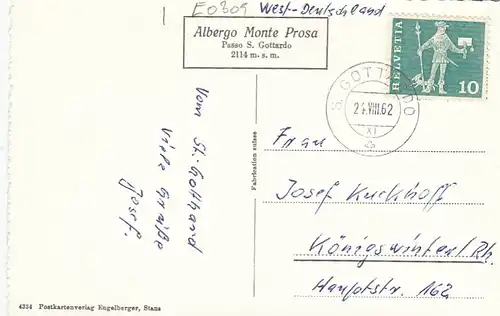 E0309 West-Deutschland
Albergo Monte Prosa
Passo S. Gottardo
2114 m. s. m.
HELVETIA
10
S. GOTTARDO
24.VIII.62
XI
Vom St. Gotthard
viele Grüße
Josef.
Fabrication suisse
Frau
Josef Kuckhoff
Königswinter/Rh.
Hauptstr. 162
4334 Postkartenverlag Engelberger, Stans